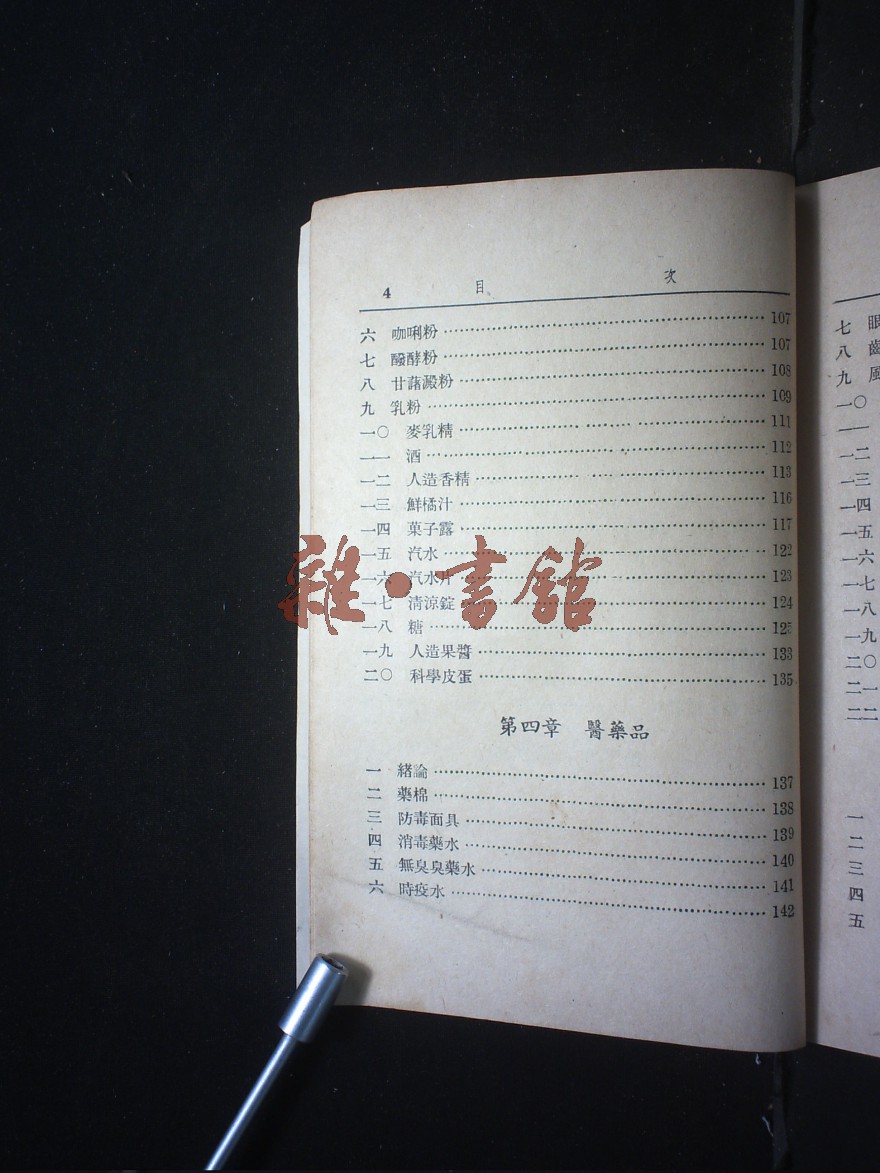 4 目 次
六 咖唎粉 107
七 醱酵粉 107
八 甘藷澱粉 108
九 乳粉 109
一〇 麥乳精 111
一一 酒 112
一二 人造香精 113
一三 鮮橘汁 116
一四 菓子露 117
一五 汽水 122
一六 汽水片 123
一七 清涼錠 124
一八 糖 125
一九 人造果醬 133
二〇 科學皮蛋 135
第四章 醫藥品
一 緒論 137
二 藥棉 138
三 防毒面具 139
四 消毒藥水 140
五 無臭臭藥水 141
六 時疫水 142
雜·書館
七 眼
八 齒
九 風
一〇
一一
一二
一三
一四
一五
一六
一七
一八
一九
二〇
二一
二二
一
二
三
四
五